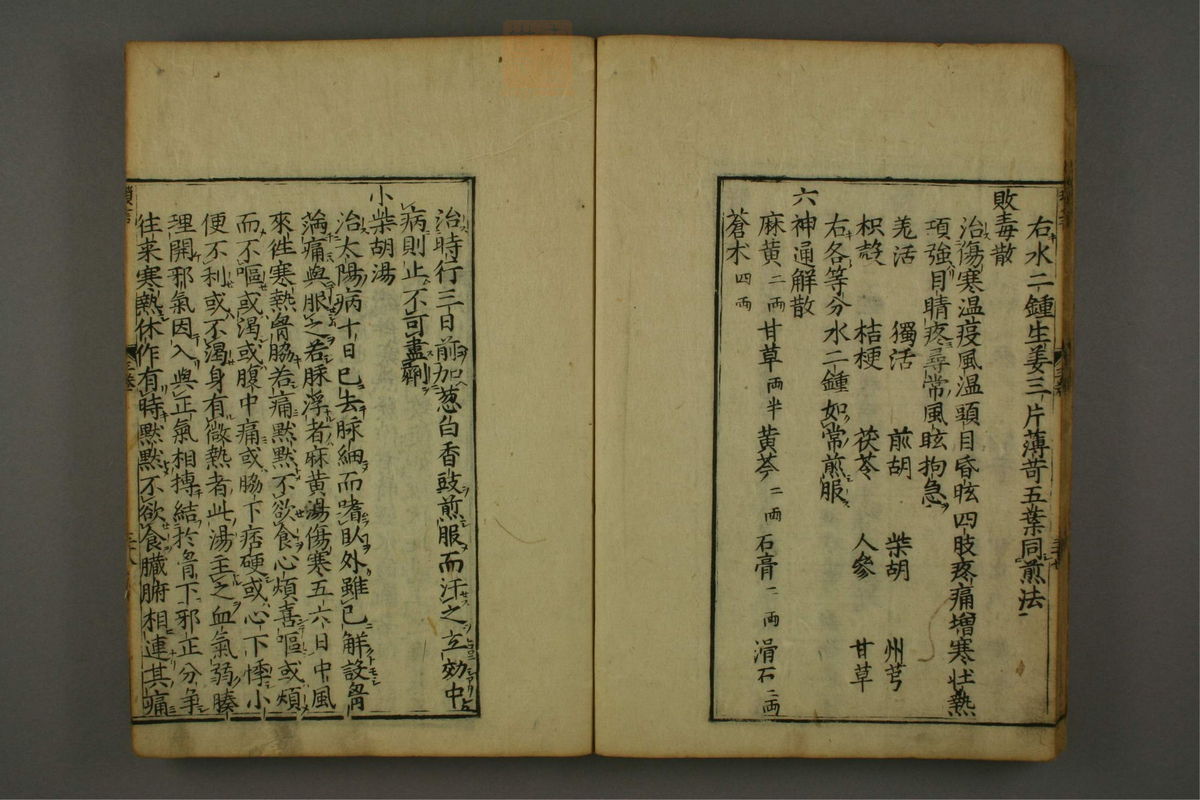 右水二鍾生姜三片薄苛五葉同煎法
敗毒散
治傷寒温疫風温頭目昏眩四肢疼痛増寒壮熱
項強目睛疼尋常風眩拘急
羌活 獨活 前胡 柴胡 州芎
枳殻 桔梗 茯苓 人參 甘草
右各等分水二鍾如常煎服
六神通解散
麻黄二両 甘草両半 黄芩二両 石膏二両 滑石二両
蒼朮四両
治時行三日前加葱白香豉煎服而汗之立効中
病則止不可盡劑
小柴胡湯
治太陽病十日已去脉細而嗜臥外雖已解設胷
満痛與服之若脉浮者麻黄湯傷寒五六日中風
來徃寒熱胷脇若痛黙黙不欲食心煩喜嘔或煩
而不嘔或渇或腹中痛或脇下痞硬或心下悸小
便不利或不渇身有微熱者此湯主之血氣弱腠
理開邪氣因入與正氣相搏結於胷下邪正分争
徃来寒熱休作有時黙黙不欲食臓腑相連其痛